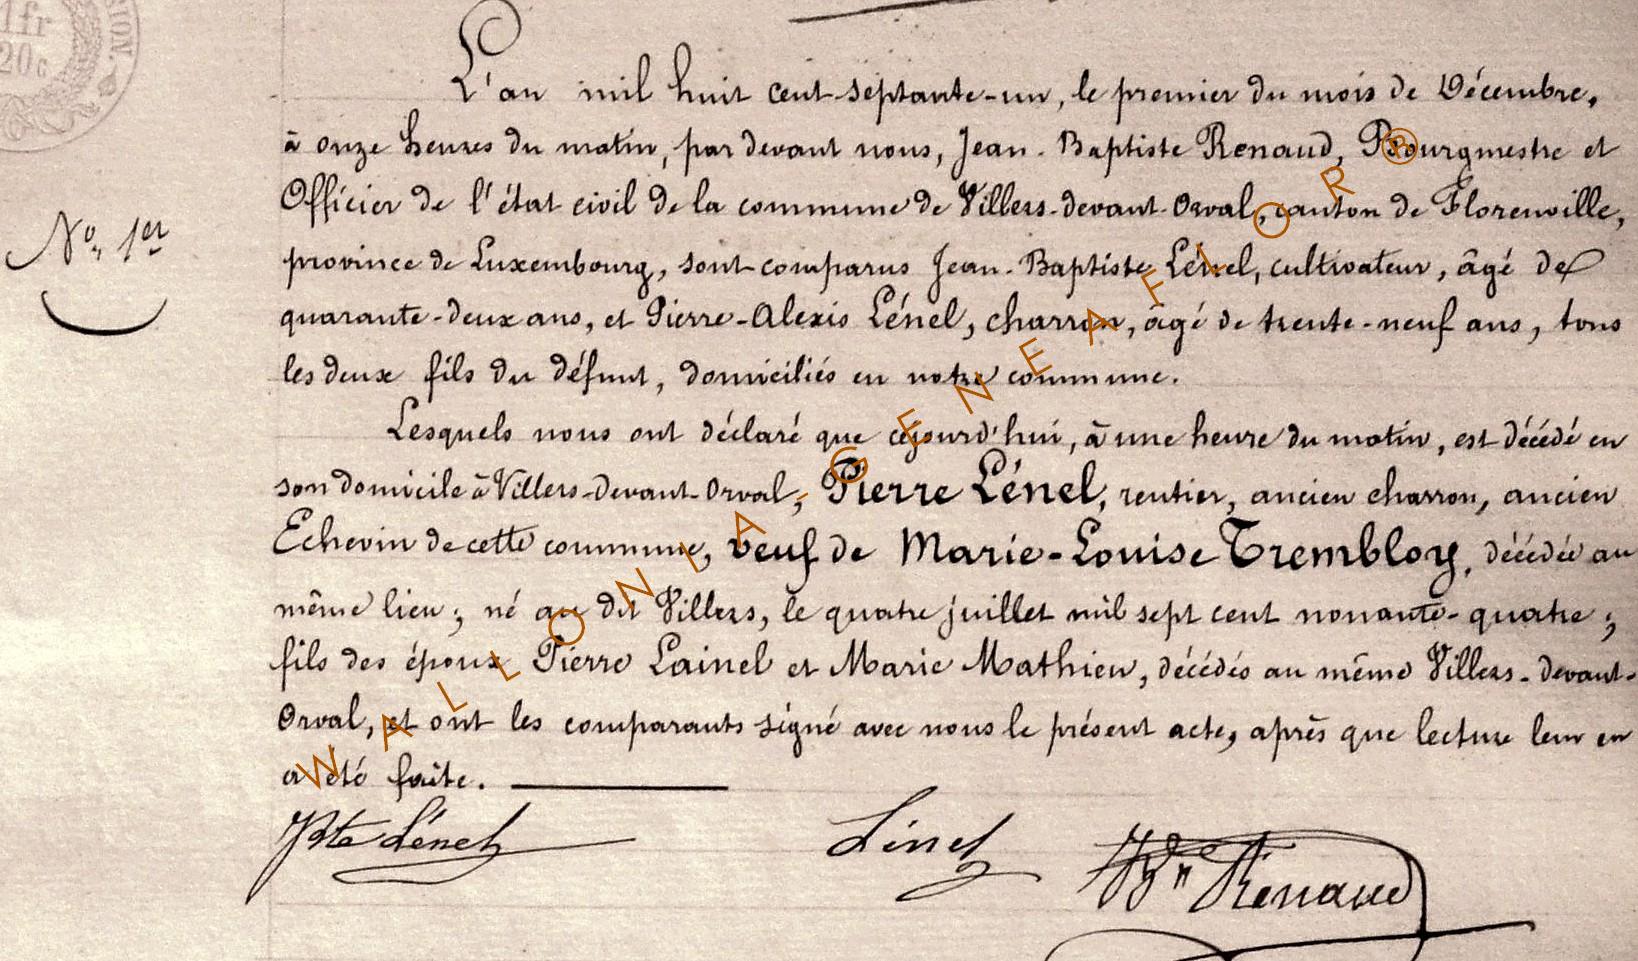 1fr
20c
ION.
L'an mil huit cent septante-un, le premier du mois de Décembre,
à onze heures du matin, par devant nous, Jean-Baptiste Renaud, Bourgmestre et
Officier de l'état civil de la commune de Villers-devant-Orval, canton de Florenville,
N° 1er
province de Luxembourg, sont comparus Jean-Baptiste Lénel, cultivateur, âgé de
quarante-deux ans, et Pierre-Alexis Lénel, charron, âgé de trente-neuf ans, tous
les deux fils du défunt, domiciliés en notre commune.
Lesquels nous ont déclaré que cejourd'hui, à une heure du matin, est décédé en
son domicile à Villers-devant-Orval, Pierre Lénel, rentier, ancien charron, ancien
Echevin de cette commune, veuf de Marie-Louise Trembloy, décédée au
même lieu; né au dit Villers, le quatre juillet mil sept cent nonante-quatre;
fils des époux Pierre Lainel et Marie Mathieu, décédés au même Villers-devant-
Orval, et ont les comparants signé avec nous le présent acte, après que lecture leur en
a été faite.
JBte Lénel Lénel JBn Renaud
WALLONIA-GENEAFLOR®